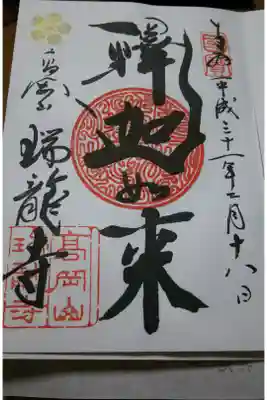 平成三十一年二月十八日
釋迦如来
高岡山
瑞龍寺
高岡山
瑞龍寺